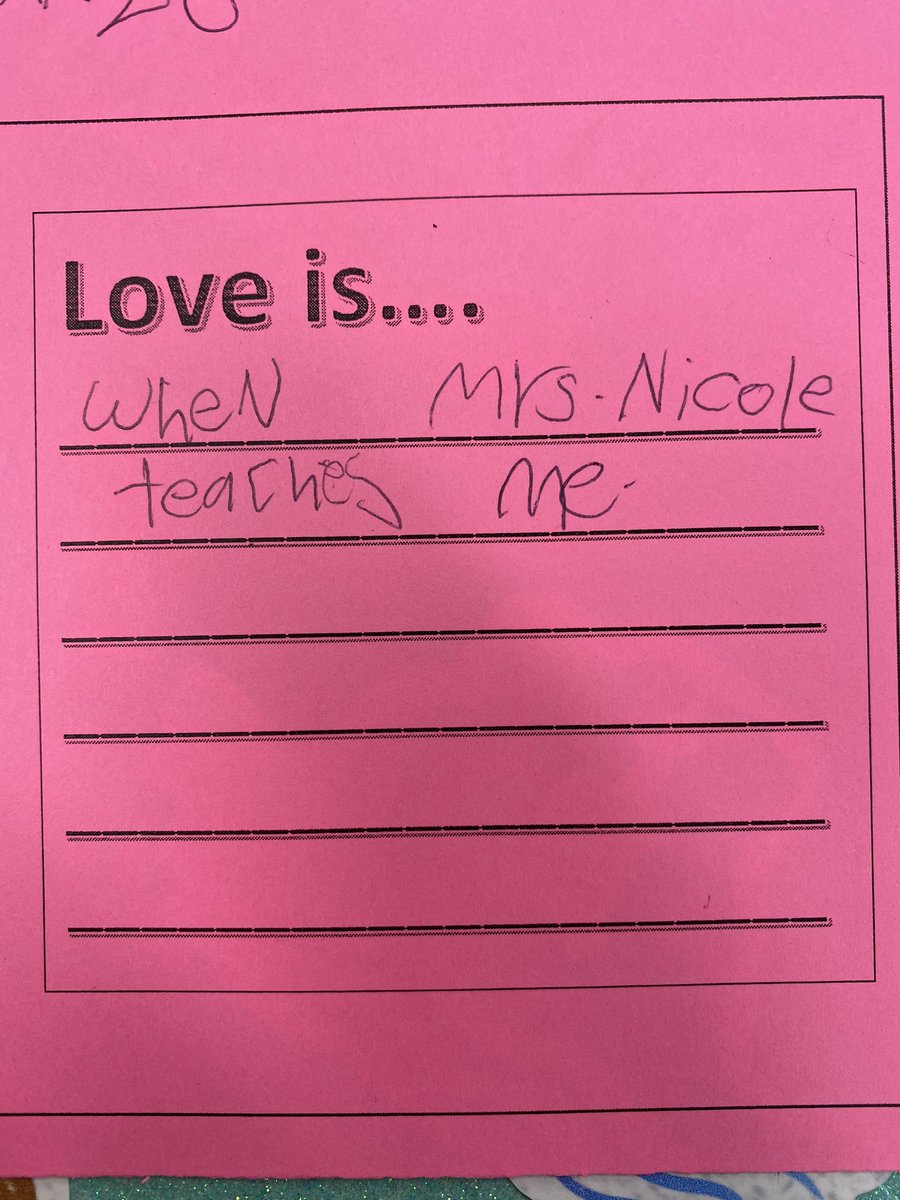 Love is....
wheN Mrs. Nicole
teaches me.